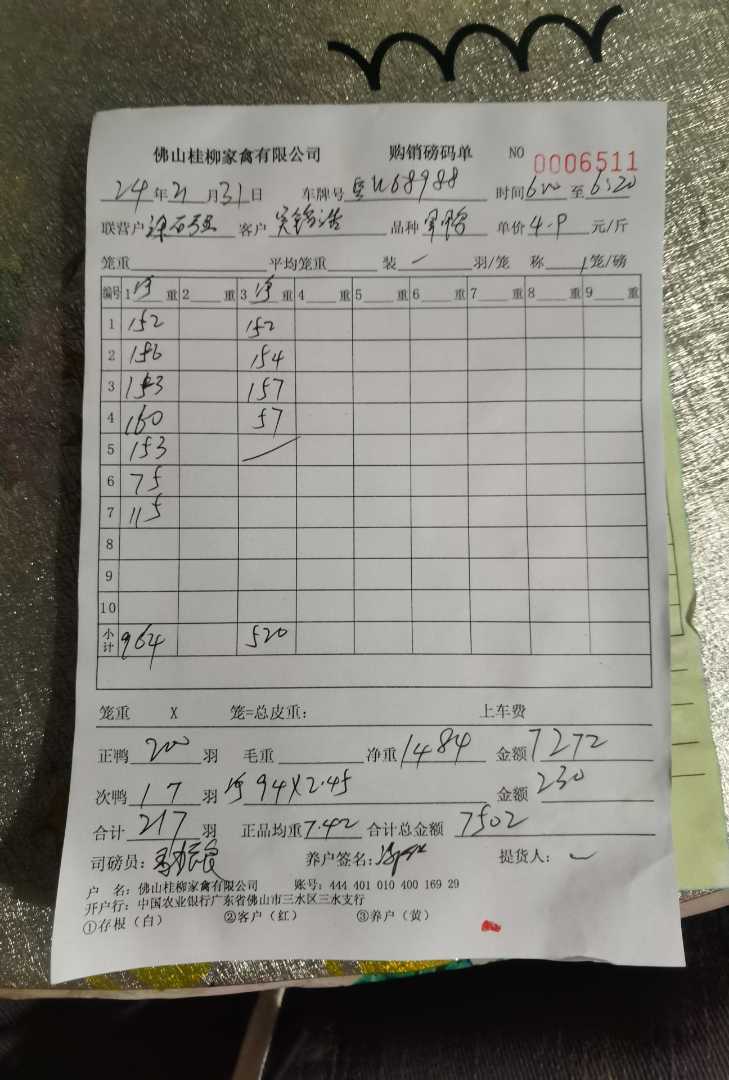 佛山桂柳家禽有限公司 购销磅码单 NO 0006511
24年 月31日 车牌号 粤U68988 时间6:00至6:20
联营户 客户 品种 单价4.9元/斤
笼重 平均笼重 装一羽/笼 称 笼/磅
编号 1净重 2重 3净重 4重 5重 6重 7重 8重 9重
1 152 152
2 156 154
3 153 157
4 160 57
5 153
6 75
7 115
8
9
10
小计 964 520
笼重 X 笼=总皮重: 上车费
正鸭200羽 毛重 净重1484 金额7272
次鸭17羽 净94X2.45 金额230
合计217羽 正品均重7.42 合计总金额7502
司磅员: 养户签名: 提货人:
户 名:佛山桂柳家禽有限公司 账号:444 401 010 400 169 29
开户行:中国农业银行广东省佛山市三水区三水支行
①存根(白) ②客户(红) ③养户(黄)